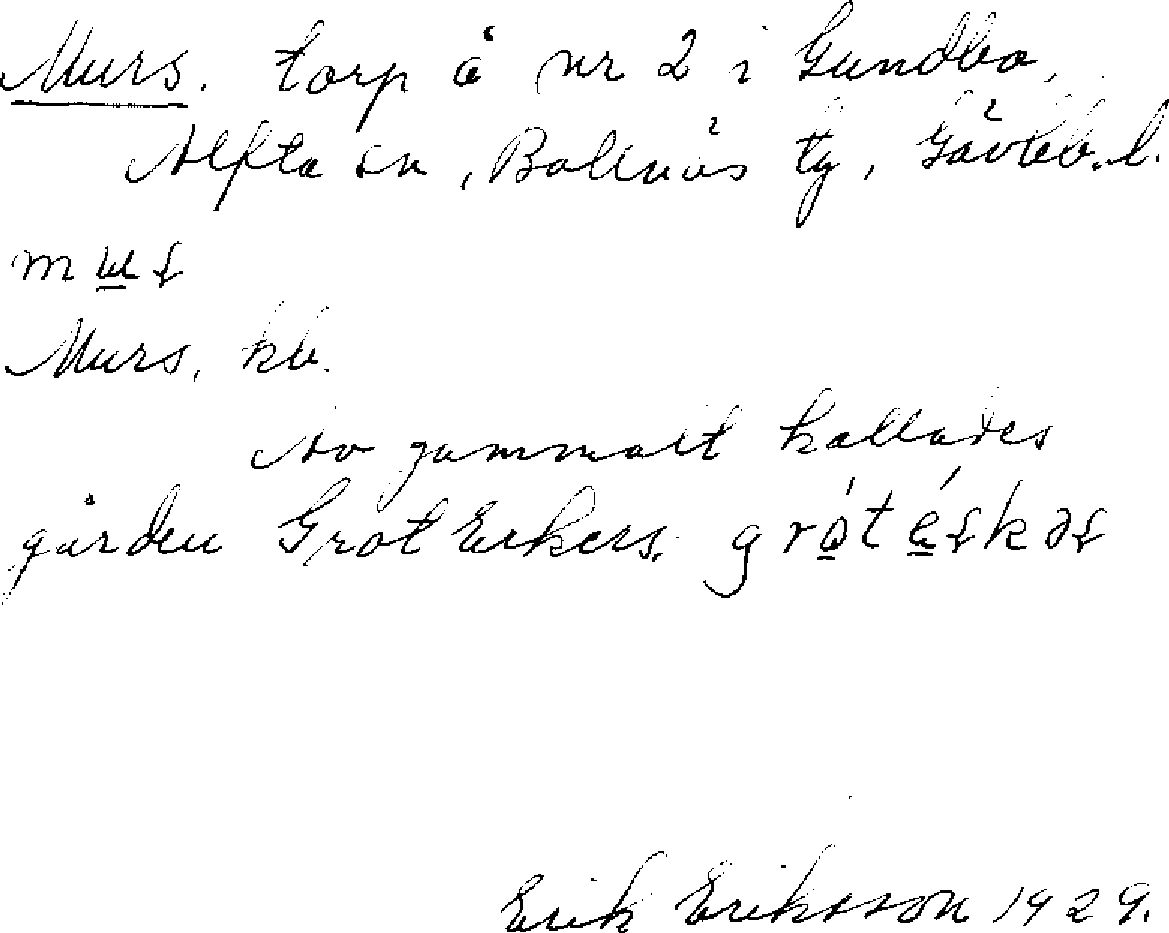 Murs. torp å nr 2 i Gundbo,
Alfta sn, Bollnäs tg, Gävleb. l.
Murs, kb.
Av gammalt kallades
gården Grot Erkers.
Erik Eriksson 1929.